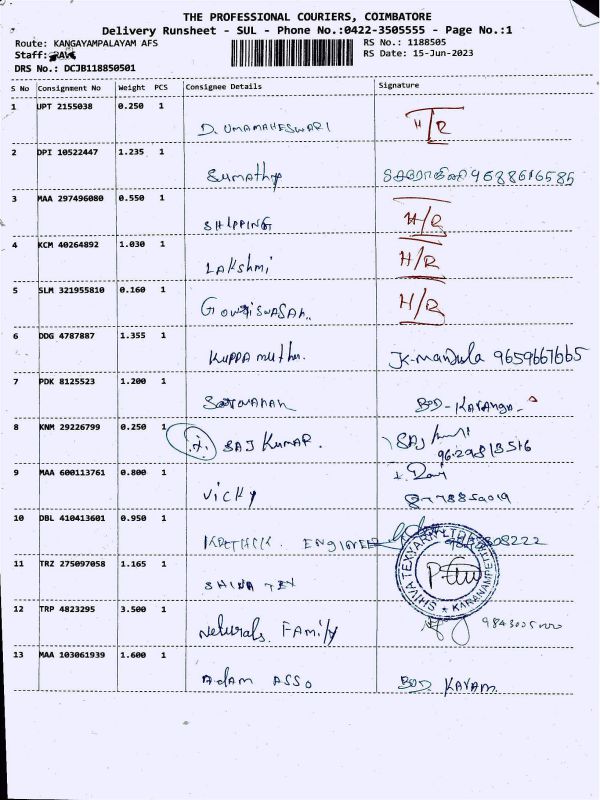 THE PROFESSIONAL COURIERS, COIMBATORE
Delivery Runsheet - SUL - Phone No.:0422-3505555 - Page No.:1
Route: KANGAYAMPALAYAM AFS RS No.: 1188505
Staff: RS Date: 15-Jun-2023
DRS No.: DCJB118850501
S No Consignment No Weight PCS Consignee Details Signature
1 UPT 2155038 0.250 1
D. UMAMAHESWARI H/R
2 DPI 10522447 1.235 1
Sumathy 9688616585
3 MAA 297496080 0.550 1
SHIPPING H/R
4 KCM 40264892 1.030 1
Lakshmi H/R
5 SLM 321955810 0.160 1
H/R
6 DDG 4787887 1.355 1
Kuppa muthu. 9659667665
7 PDK 8125523 1.200 1
8 KNM 29226799 0.250 1
SAJ KUMAR.
9 MAA 600113761 0.800 1
Vicky
10 DBL 410413601 0.950 1
ENGINEER
11 TRZ 275097058 1.165 1
SHIVA TEX SHIVA TEXYARN LTD KARANAMPET
12 TRP 4823295 3.500 1
Neturals. Family
13 MAA 103061939 1.600 1
Adam ASSO